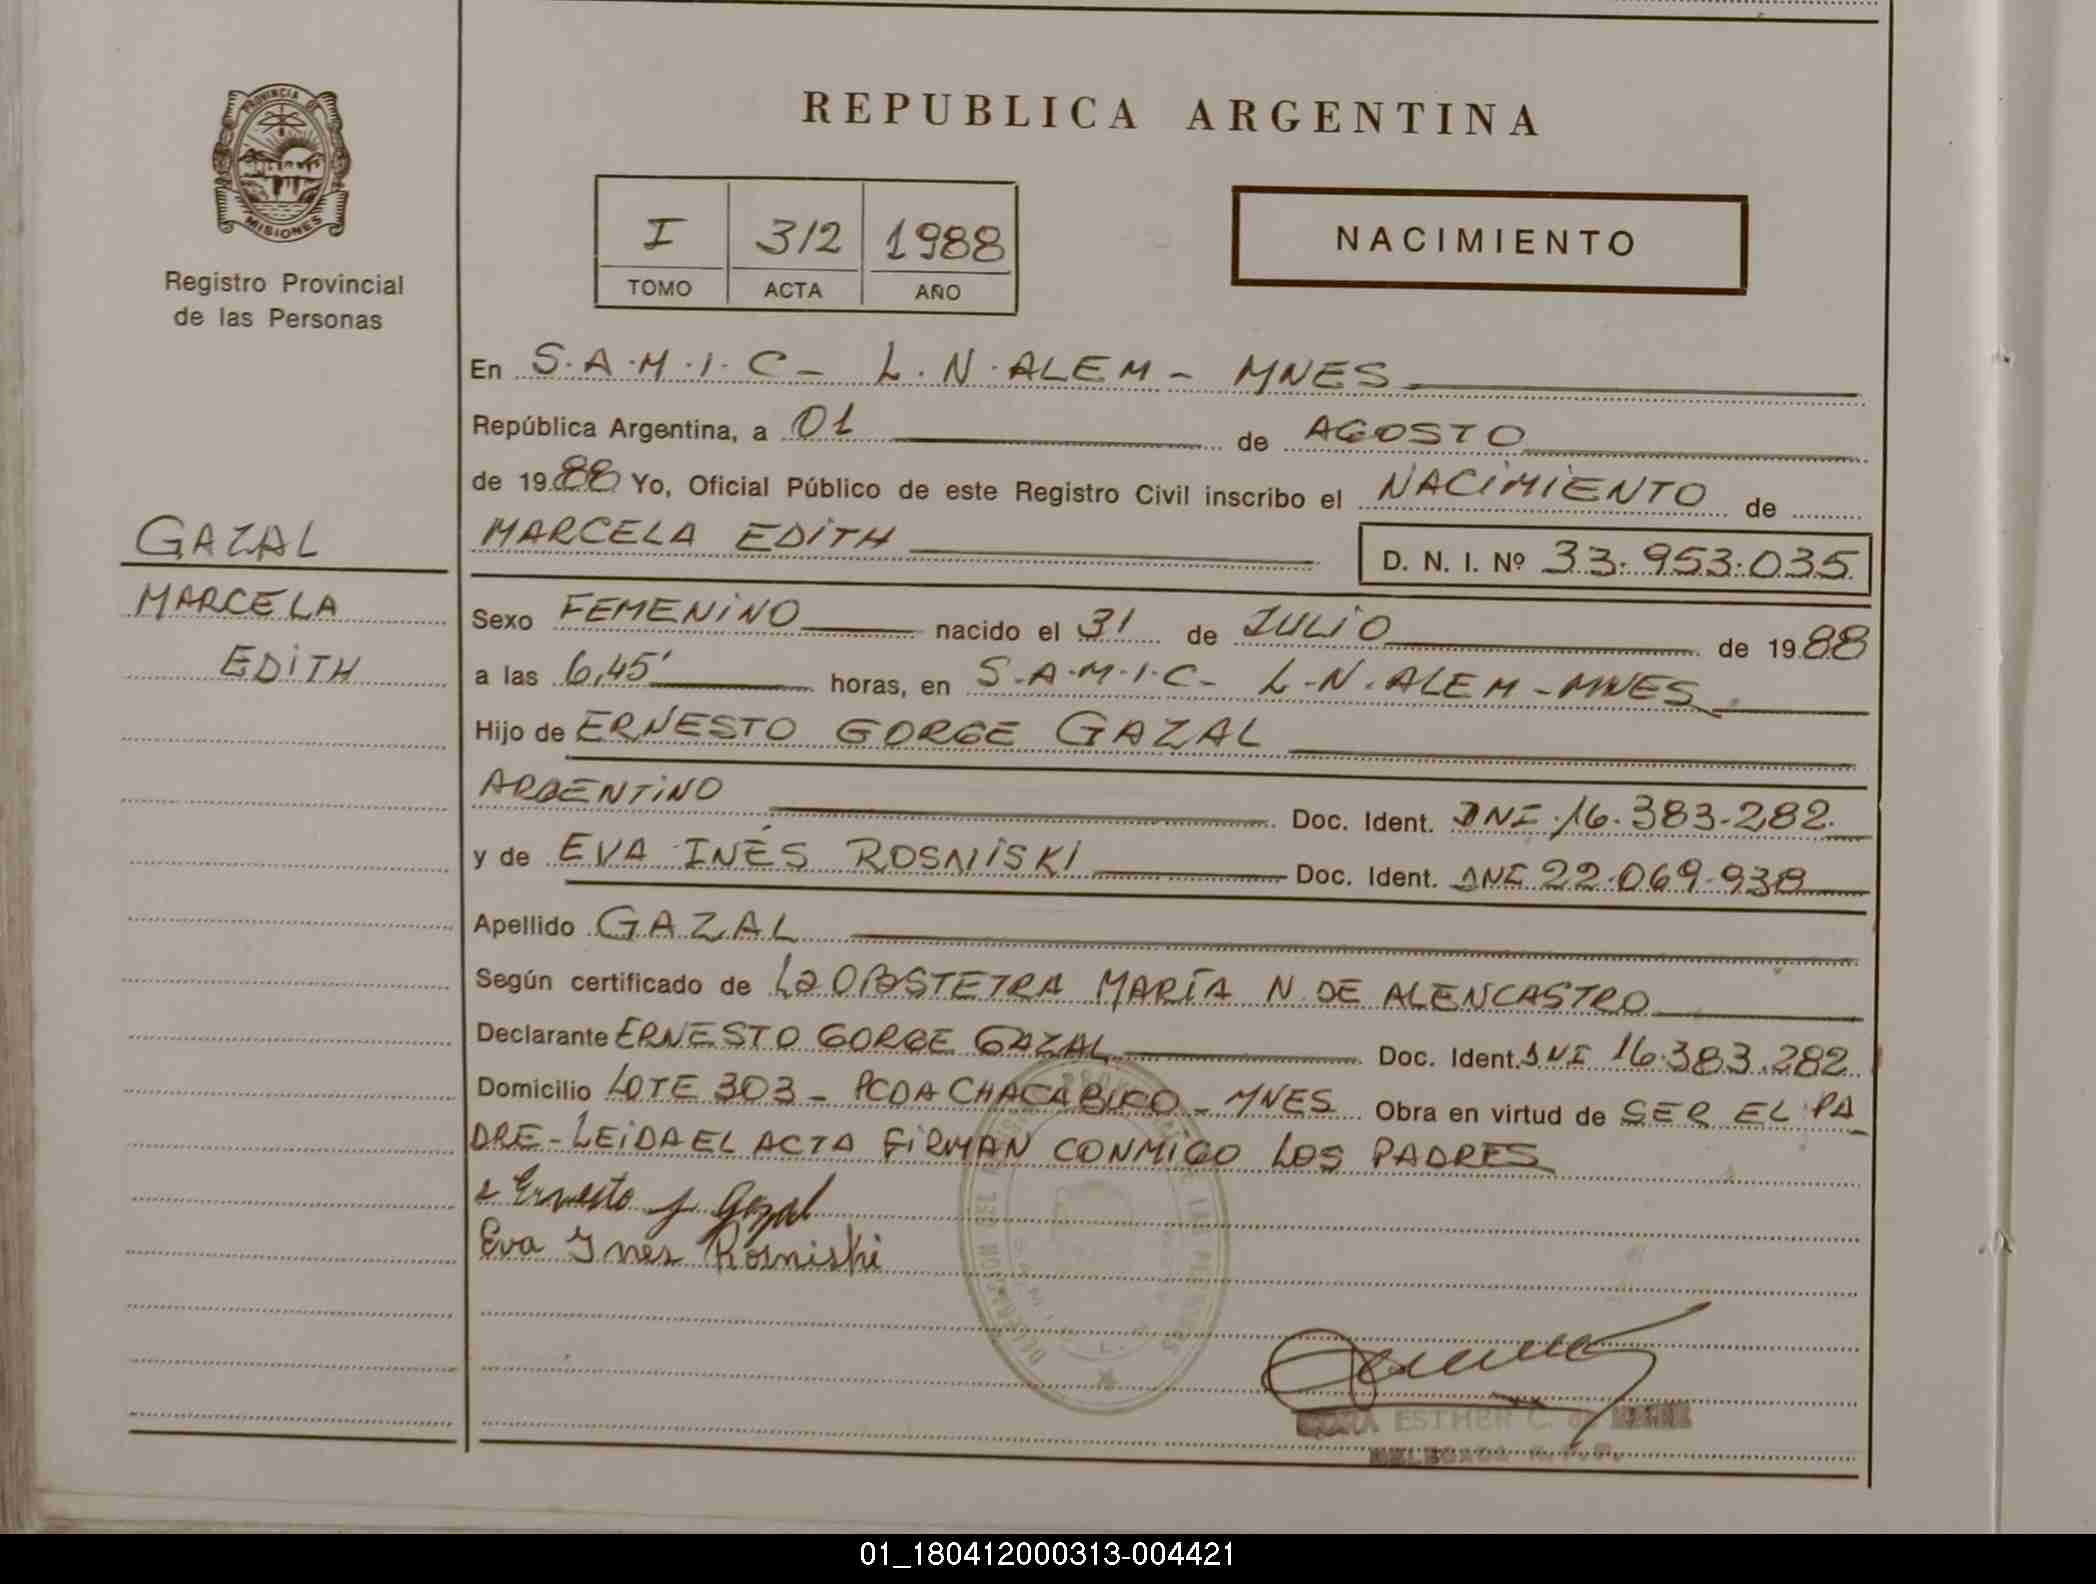 PROVINCIA DE
MISIONES
Registro Provincial
de las Personas
GAZAL
MARCELA
EDITH
REPUBLICA ARGENTINA
I 312 1988
TOMO ACTA AÑO
NACIMIENTO
En S.A.M.I.C- L.N.ALEM- MNES
República Argentina, a 01 de AGOSTO
de 1988 Yo, Oficial Público de este Registro Civil inscribo el NACIMIENTO de
MARCELA EDITH D. N. I. Nº 33.953.035
Sexo FEMENINO nacido el 31 de JULIO de 1988
a las 6,45' horas, en S.A.M.I.C- L.N.ALEM-MNES
Hijo de ERNESTO GORGE GAZAL
ARGENTINO Doc. Ident. DNI 16.383.282
y de EVA INÉS ROSNISKI Doc. Ident. DNI 22.069.938
Apellido GAZAL
Según certificado de La OBSTETRA MARÍA N DE ALENCASTRO
Declarante ERNESTO GORGE GAZAL Doc. Ident. DNI 16.383.282
Domicilio LOTE 303- PCDA CHACABUCO- MNES Obra en virtud de SER EL PA
DRE-LEIDA EL ACTA FIRMAN CONMIGO LOS PADRES
Ernesto J Gazal
Eva Ynes Rosniski
ESTHER C. de
DELEGADA R.P.P.
01_180412000313-004421